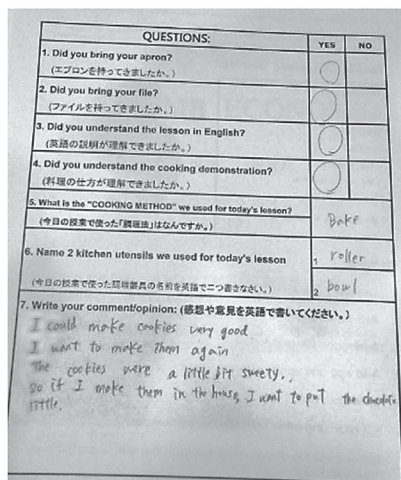 QUESTIONS:
YES
NO
1. Did you bring your apron?
(エプロンを持ってきましたか。)
2. Did you bring your file?
(ファイルを持ってきましたか。)
3. Did you understand the lesson in English?
(英語の説明が理解できましたか。)
4. Did you understand the cooking demonstration?
(料理の仕方が理解できましたか。)
5. What is the "COOKING METHOD" we used for today's lesson?
(今日の授業で使った「調理法」はなんですか。)
Bake
6. Name 2 kitchen utensils we used for today's lesson
(今日の授業で使った調理器具の名前を英語で二つ書きなさい。)
1 roller
2 bowl
7. Write your comment/opinion: (感想や意見を英語で書いてください。)
I could make cookies very good
I want to make them again
The cookies were a little bit sweety.
so if I make them in the house, I want to put the chocolate
little.